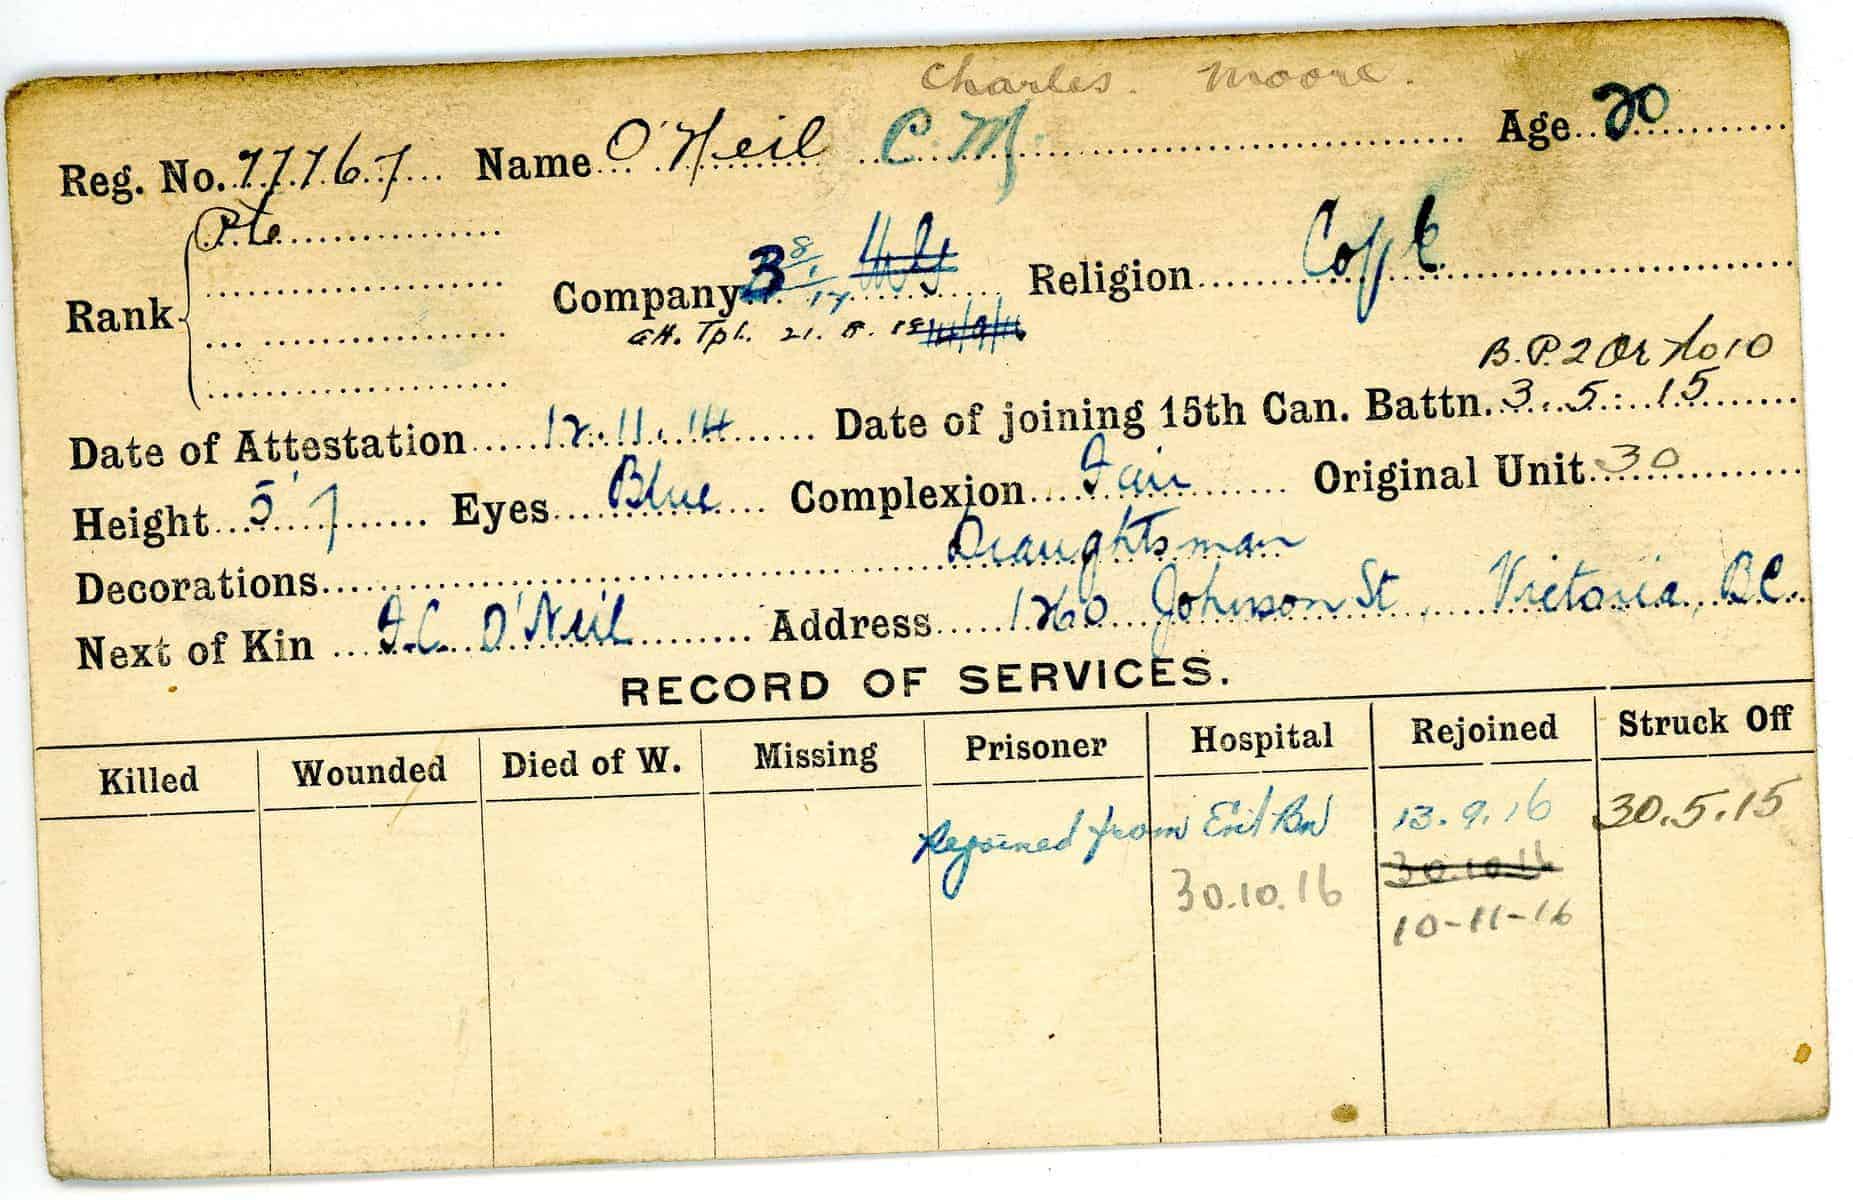 Charles. Moore.
Reg. No. 77767 Name O'Neil C. M. Age 20
Pte
Rank Company 3 8/1/17 Religion C of E
Att. Tpt. 21. 8. 18
B.P.2 Or No 10
Date of Attestation 12.11.14 Date of joining 15th Can. Battn. 3.5.15
Height 5' 7 Eyes Blue Complexion Fair Original Unit 30
Draughtsman
Decorations
Next of Kin O'Neil Address 1260 Johnson St, Victoria, B.C.
RECORD OF SERVICES.
Killed Wounded Died of W. Missing Prisoner Hospital Rejoined Struck Off
Rejoined from Ent Bn 13.9.16 30.5.15
30.10.16 30.10.16
10-11-16